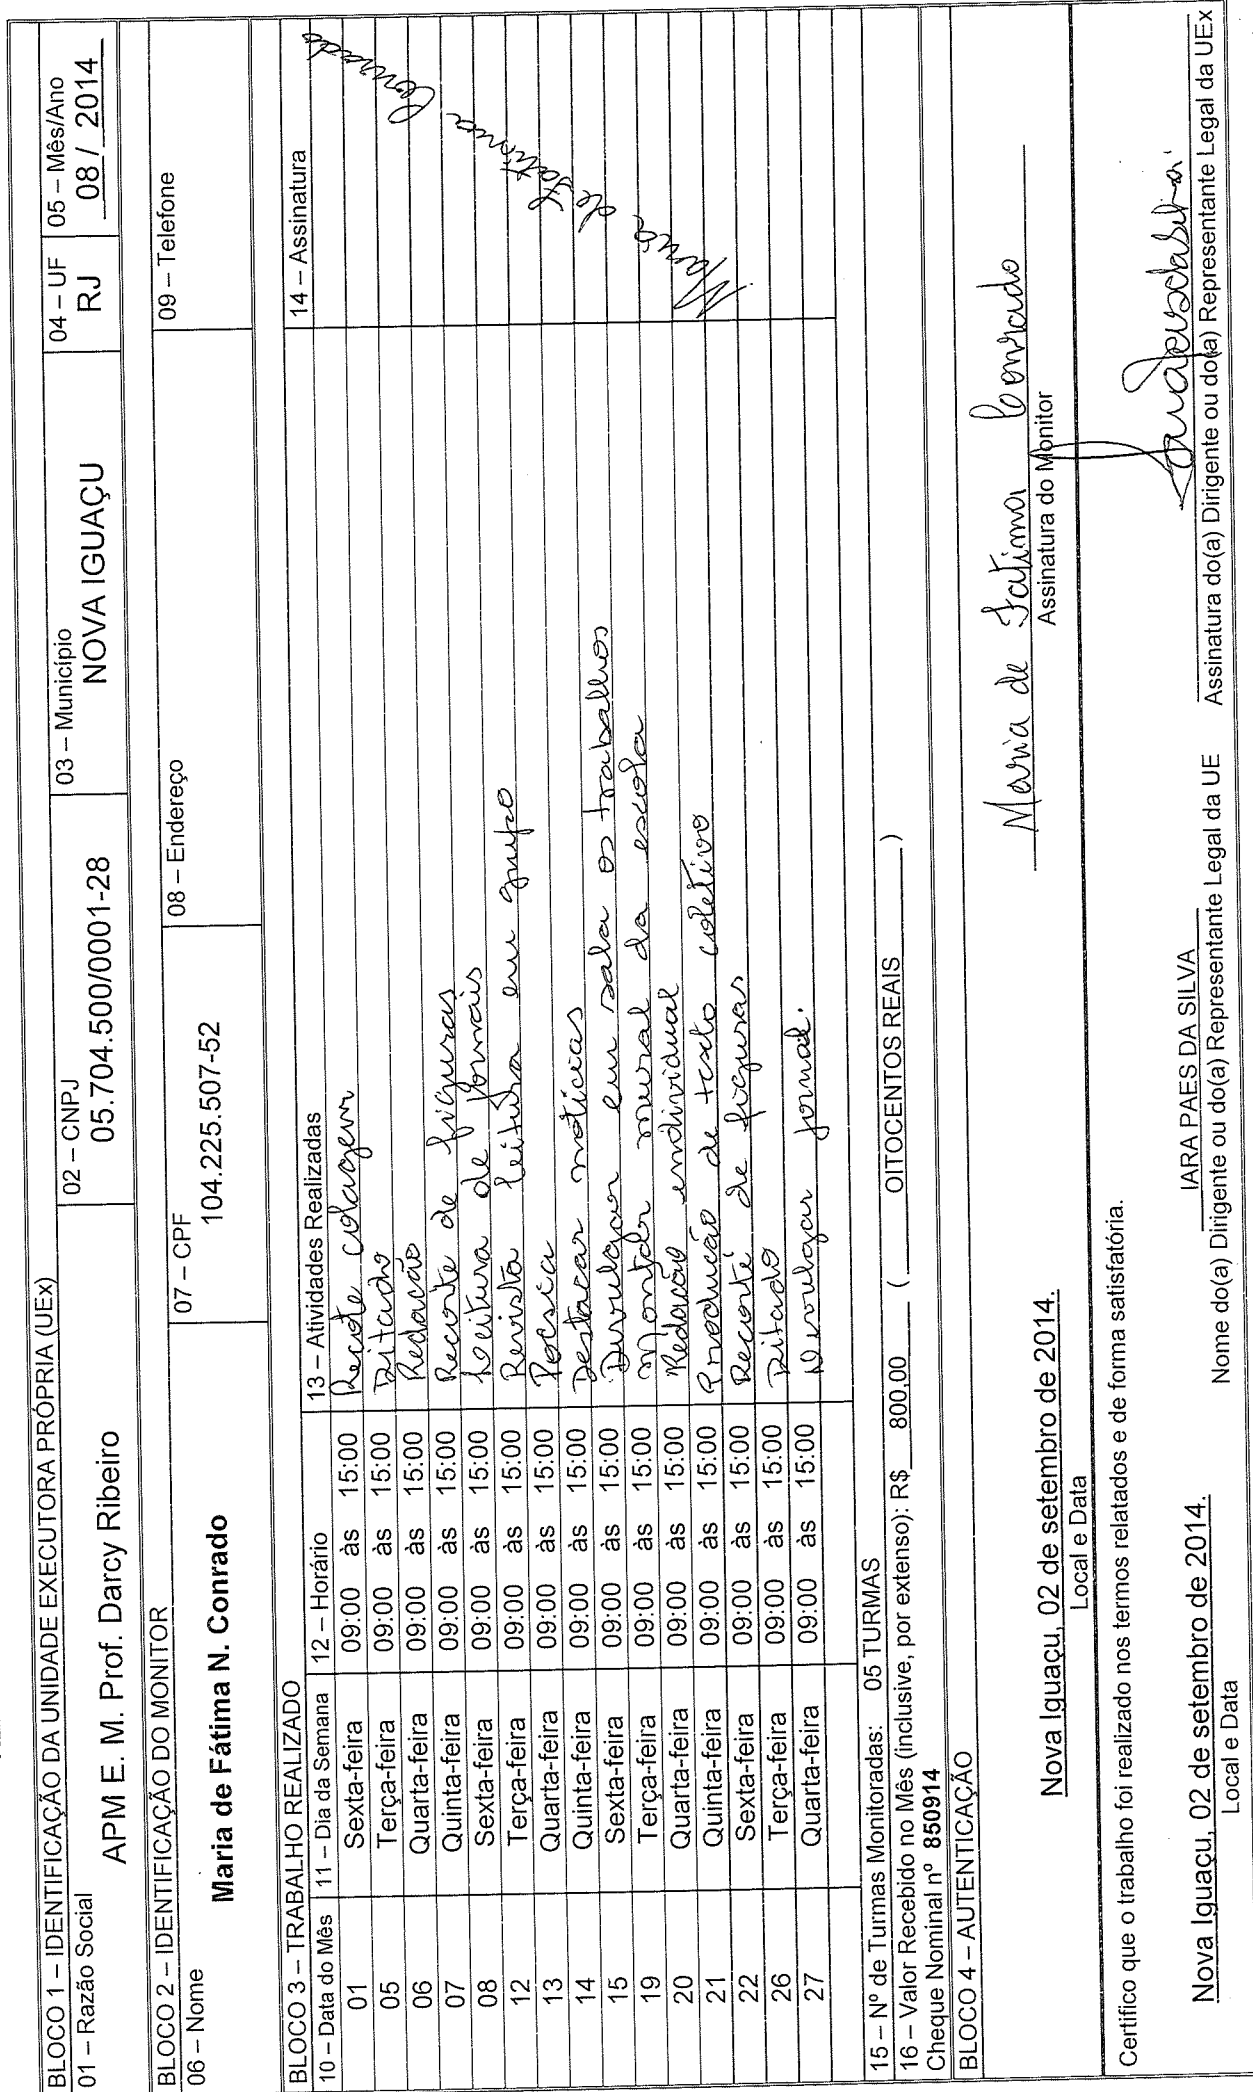 BLOCO 1 – IDENTIFICAÇÃO DA UNIDADE EXECUTORA PRÓPRIA (UEx)
01 – Razão Social 02 – CNPJ 03 – Município 04 – UF 05 – Mês/Ano
APM E. M. Prof. Darcy Ribeiro 05.704.500/0001-28 NOVA IGUAÇU RJ 08 / 2014
BLOCO 2 – IDENTIFICAÇÃO DO MONITOR
06 – Nome 07 – CPF 08 – Endereço 09 – Telefone
Maria de Fátima N. Conrado 104.225.507-52
BLOCO 3 – TRABALHO REALIZADO
10 – Data do Mês 11 – Dia da Semana 12 – Horário 13 – Atividades Realizadas 14 – Assinatura
01 Sexta-feira 09:00 às 15:00 Recote colagem
05 Terça-feira 09:00 às 15:00 Ditado
06 Quarta-feira 09:00 às 15:00 Redação
07 Quinta-feira 09:00 às 15:00 Recorte de figuras
08 Sexta-feira 09:00 às 15:00 Leitura de jornais
12 Terça-feira 09:00 às 15:00 Revista leitura em grupo
13 Quarta-feira 09:00 às 15:00 Poesia
14 Quinta-feira 09:00 às 15:00 Destacar notícias
15 Sexta-feira 09:00 às 15:00 Divulgar em sala os trabalhos
19 Terça-feira 09:00 às 15:00 Montar mural da escola
20 Quarta-feira 09:00 às 15:00 Redação individual
21 Quinta-feira 09:00 às 15:00 Produção de texto coletivo
22 Sexta-feira 09:00 às 15:00 Recorte de figuras
26 Terça-feira 09:00 às 15:00 Ditado
27 Quarta-feira 09:00 às 15:00 Divulgar jornal.
Maria de Fatima Conrado
15 – Nº de Turmas Monitoradas: 05 TURMAS
16 – Valor Recebido no Mês (inclusive, por extenso): R$ 800,00 ( OITOCENTOS REAIS )
Cheque Nominal nº 850914
BLOCO 4 – AUTENTICAÇÃO
Nova Iguaçu, 02 de setembro de 2014. Maria de Fatima Conrado
Local e Data Assinatura do Monitor
Certifico que o trabalho foi realizado nos termos relatados e de forma satisfatória.
Nova Iguaçu, 02 de setembro de 2014. IARA PAES DA SILVA
Local e Data Nome do(a) Dirigente ou do(a) Representante Legal da UE Assinatura do(a) Dirigente ou do(a) Representante Legal da UEx